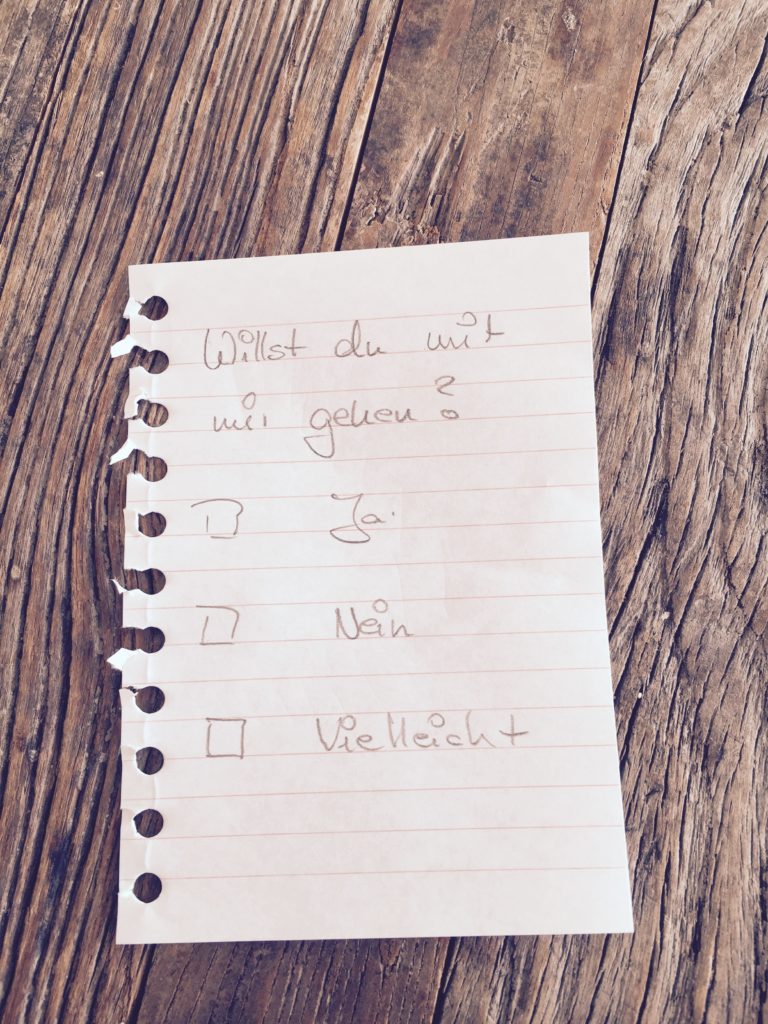 Willst du mit
mir gehen?
☐ Ja
☐ Nein
☐ Vielleicht